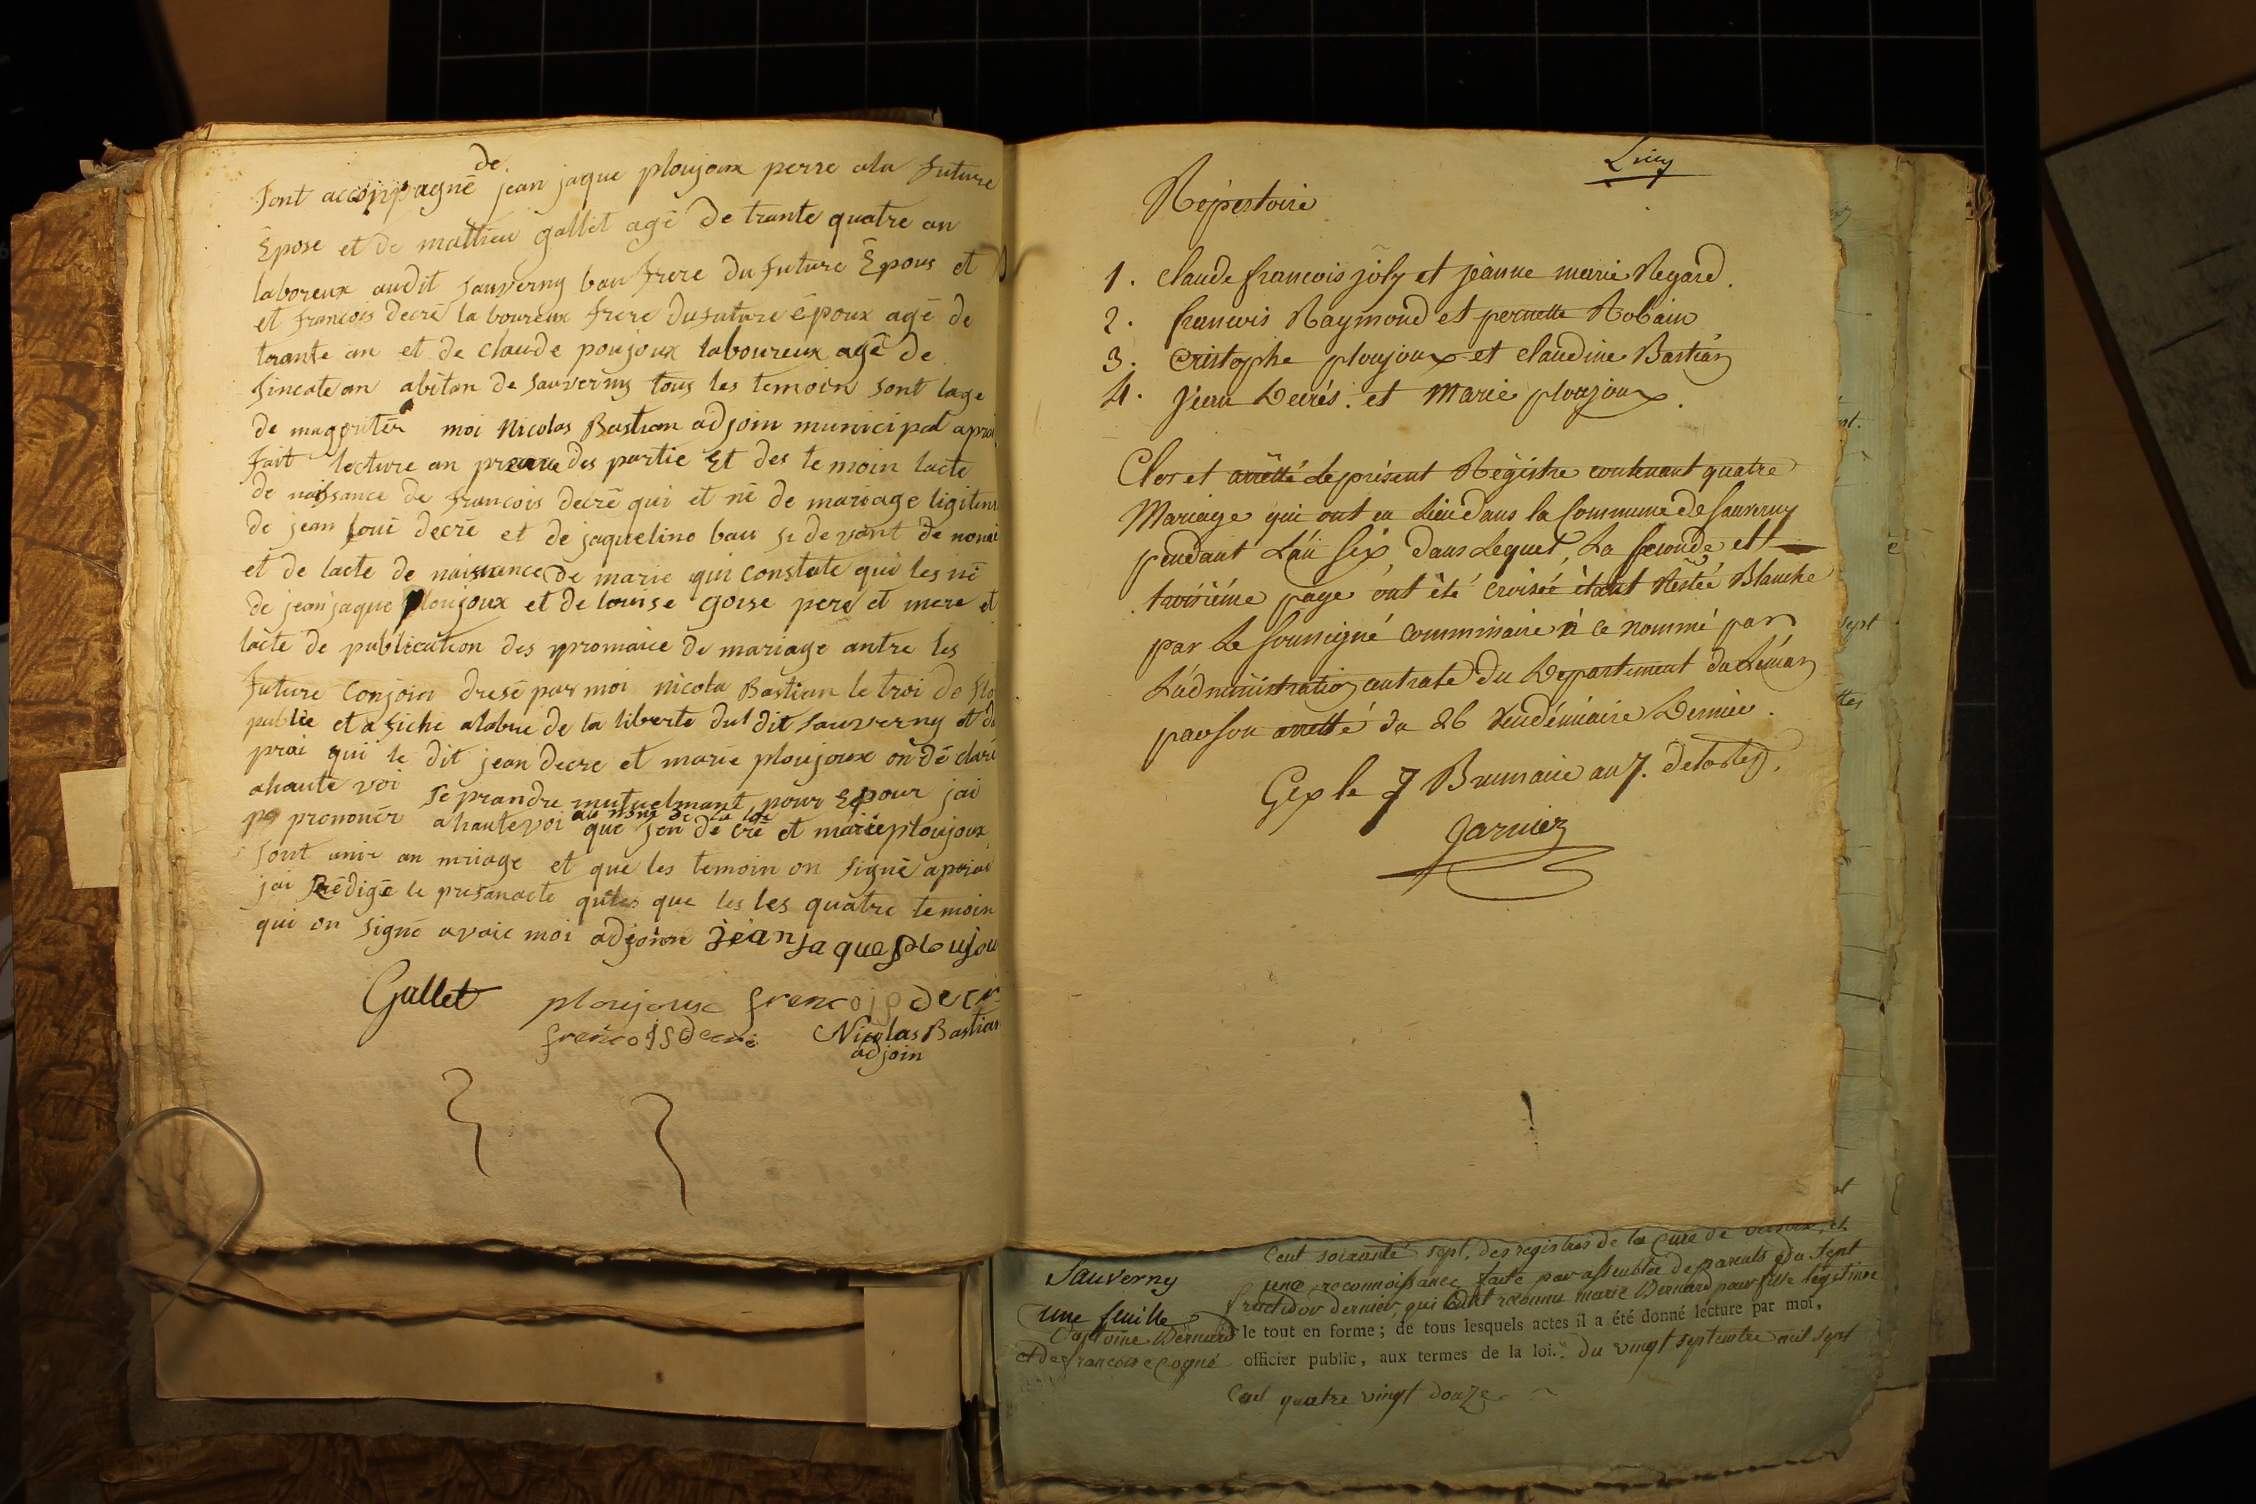 de
sont accompagné jean jaque ploujoux perre ala future
Epose et de mattieu gallet agé de trante quatre an
laboreux audit sauverny bau frere du future Epous et
et francois decré la boureux frere du future époux agé de
trante an et de claude poujoux laboureux agé de
sincate an abitan de sauverny tous les temoin sont lage
de magoriter moi Nicolas Bastian adjoin municipal aprai
fait lecture an des partie Et des te moin lacte
de naissance de francois decré qui et né de mariage ligitim
de jean loui decré et de jaqueline bau si devant de
et de lacte de naissance de marie qui constate qui les né
de jean jaque ploujoux et de louise goise pere et mere et
lacte de publication des promaice de mariage antre les
future conjoin dresé par moi nicola Bastian le troi de
public et afiché alabre de la liberte dut dit sauverny et
prai qui le dit jean decre et marie ploujoux on dé claré
ahaute voi se prandre mutuelmant pour Epour jai
au nome de la loi
prononcér ahautevoi que jan de cré et marie ploujoux
sont unir an mriage et que les temoin on signé aprai
jai Rédigé le presanacte qules que les les quatre temoin
qui on signé avaic moi adjoint jean jaque ploujou
Gallet ploujoux francois decr
francois decré Nicolas Bastian
adjoin
Répertoire
1. Claude francois joly et jeanne marie Regard.
2. francois Raymond et pernette Robain
3. Cristophe ploujoux et claudine Bastian
4. jean Decrés. et Marie ploujoux.
Clos et arretté le présent Régistre contenant quatre
Mariage qui ont eu Lieu dans la Commune de Sauverny
pendant L'an Six, dans Lequel, La seconde et
troisiéme page ont été croisée étant Restée Blanche
par Le soussigné comminaire à ce nommé par
L'administration centrale du Departement du Léman
par son arretté du 26 Vendémiaire Dernier.
Gex le 7 Brumaire an 7.
Garnier
Cent soixante sept, des registres de la Cure de versoix, et
Sauverny
une reconnoissance faite par assemblée de parents du sept
une feuille
fructidor dernier, qui reconnu marie Bernard pour fille légitime
d'antoine Bernard le tout en forme; de tous lesquels actes il a été donné lecture par moi,
et de francoise officier public, aux termes de la loi. du vingt septembre mil sept
Cent quatre vingt douze